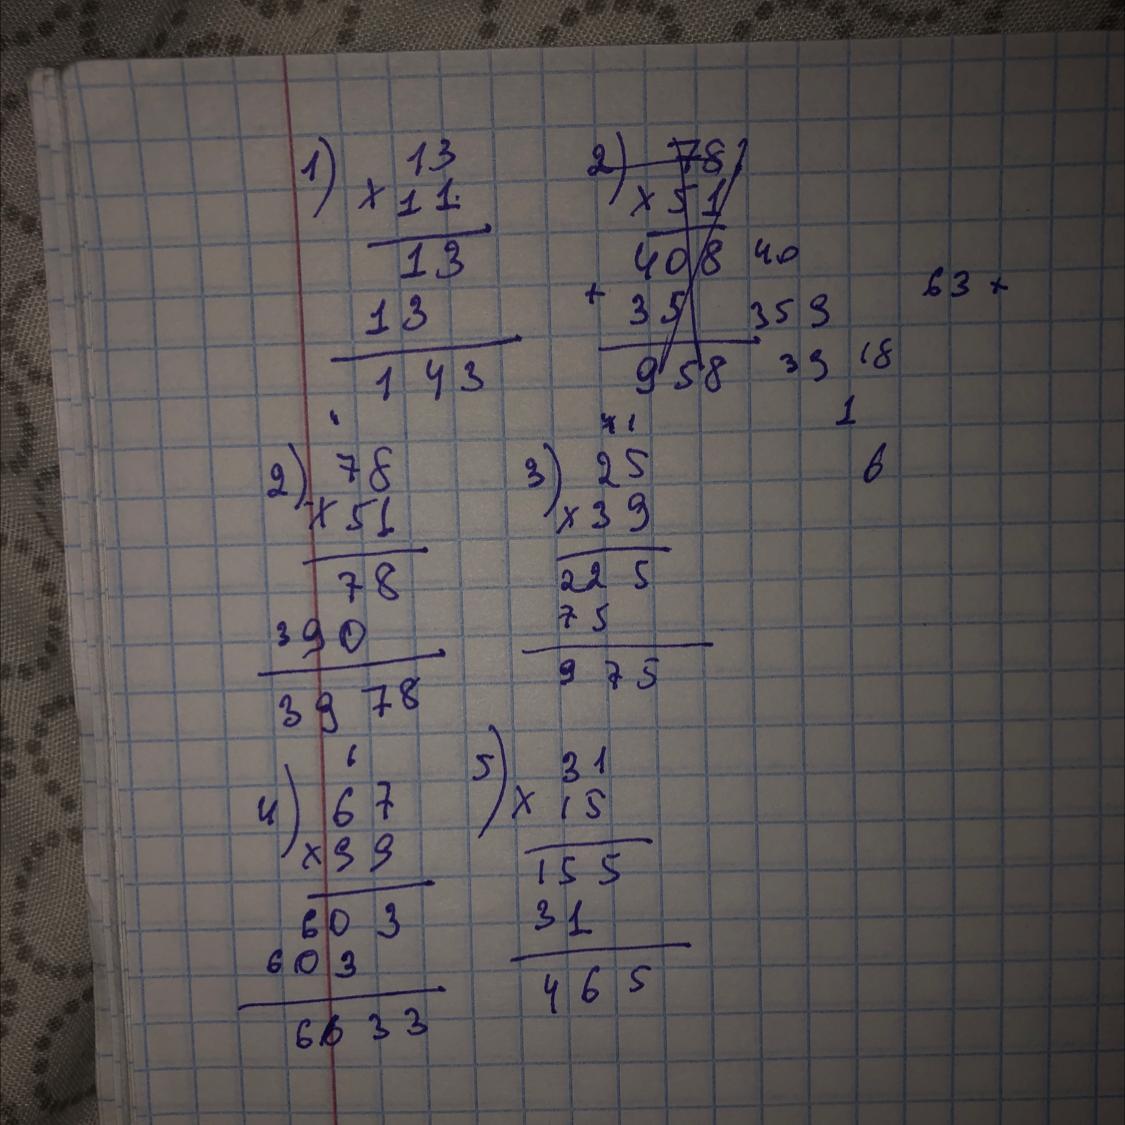 1) 13
x 11
13
13
1 43
2) 78
x 51
408 40
+ 35 359
958 39 18
63 +
1
6
2) 78
x 51
78
390
39 78
41
3) 25
x 39
22 5
75
9 75
6
4) 67
x 99
60 3
603
66 33
5) 31
x 15
155
31
465